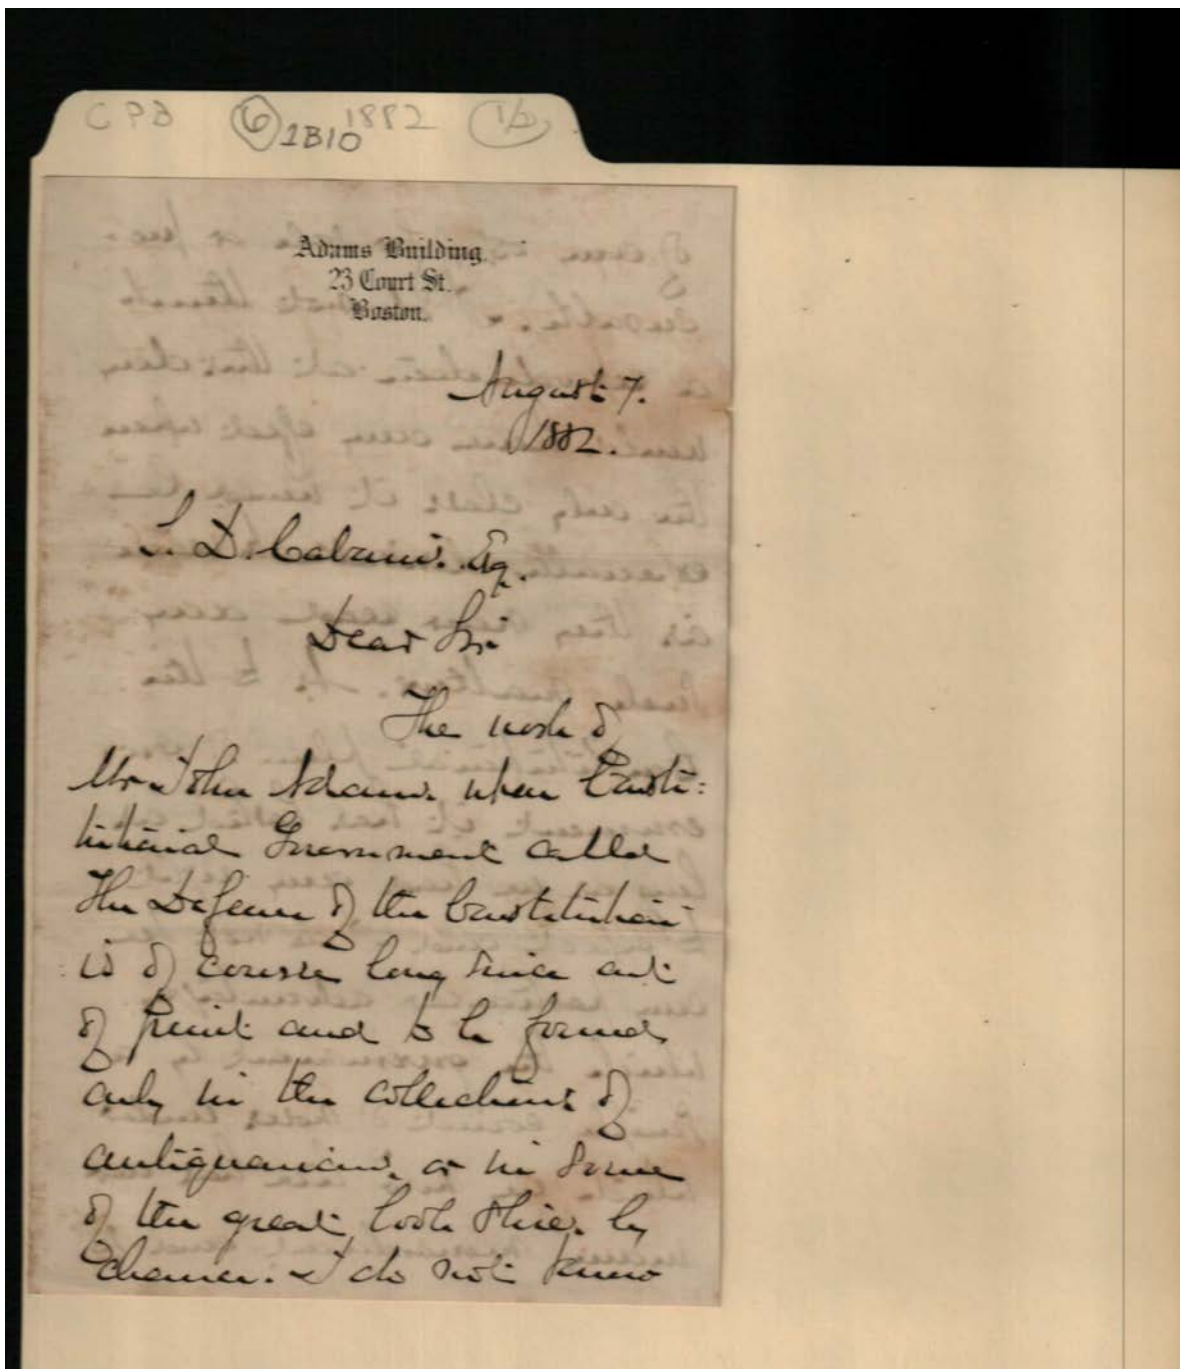 CPB 6 1B10 1882
Adams Building.
23 Court St.
Boston.
August 7.
1882.
D. Esq.
Dear Sir
The work of
Mr John Adams upon Consti=
tutional Government called
The Defence of the Constitutions
is of course long since out
of print and to be found
only in the collections of
antiquarians, or in some
of the great book stores by
chance. I do not know